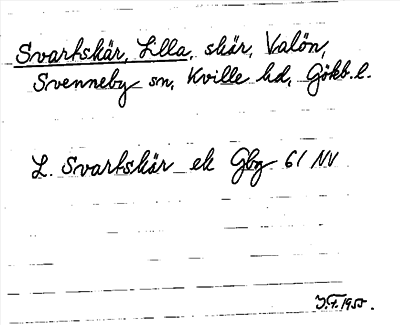 Svartskär, Lilla, skär, Valön,
Svenneby sn, Kville hd, Gökb. l.
L. Svartskär ek Gbg 61 NV
1955.